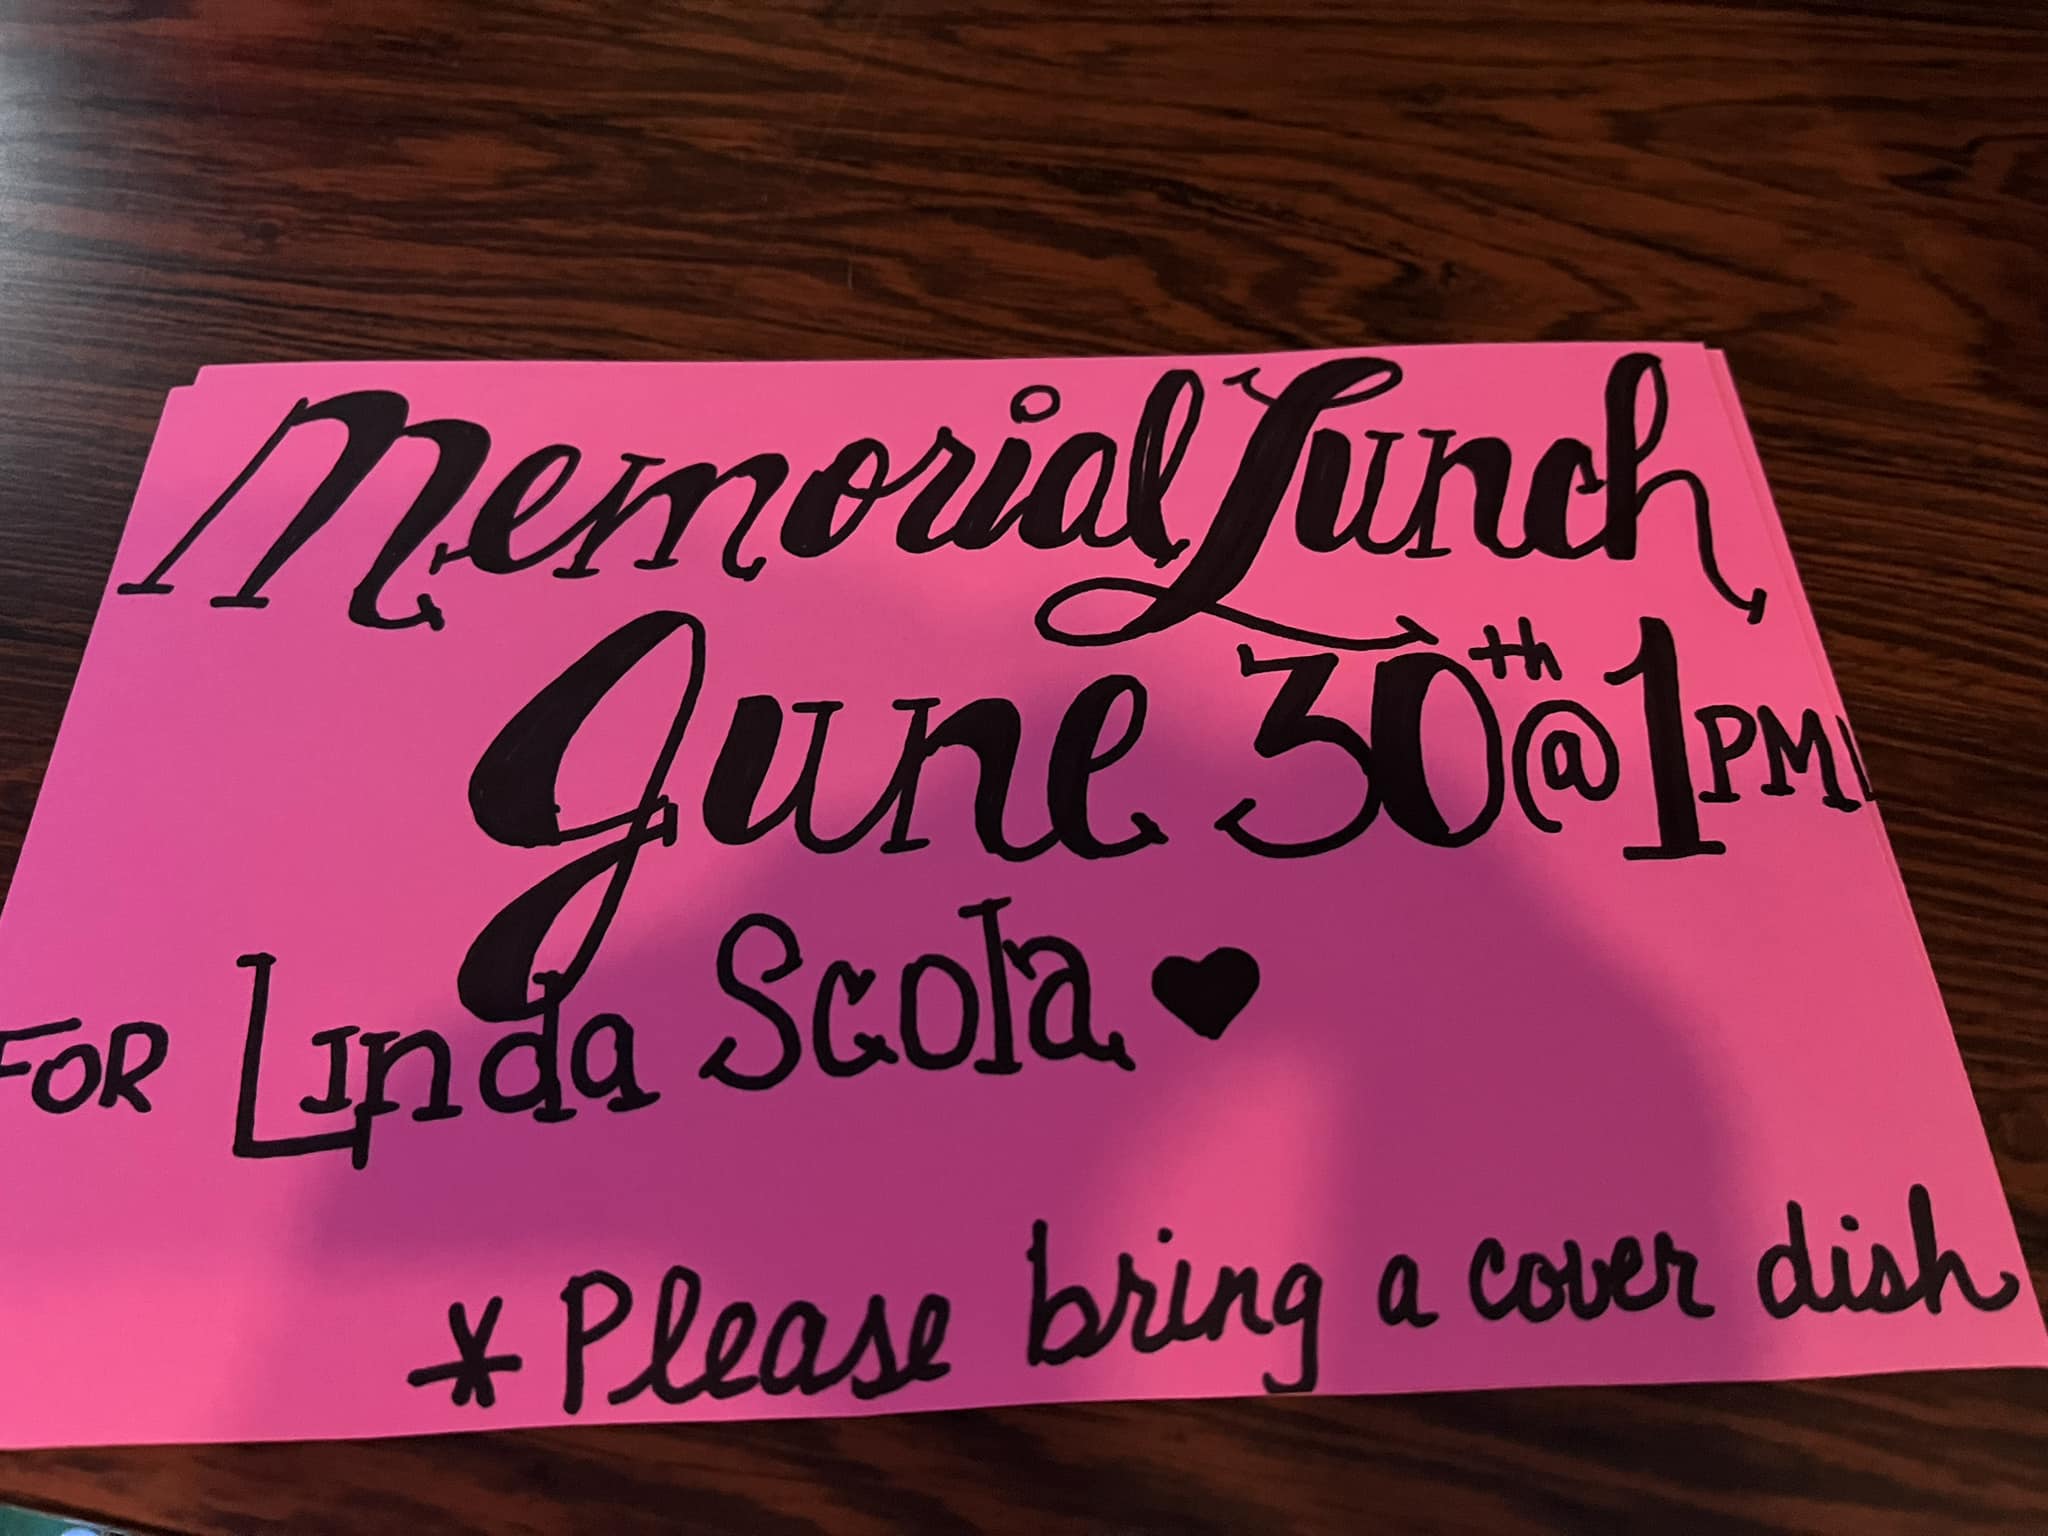 Memorial Lunch
June 30th @ 1PM!
FOR Linda Scola ♥
* Please bring a cover dish